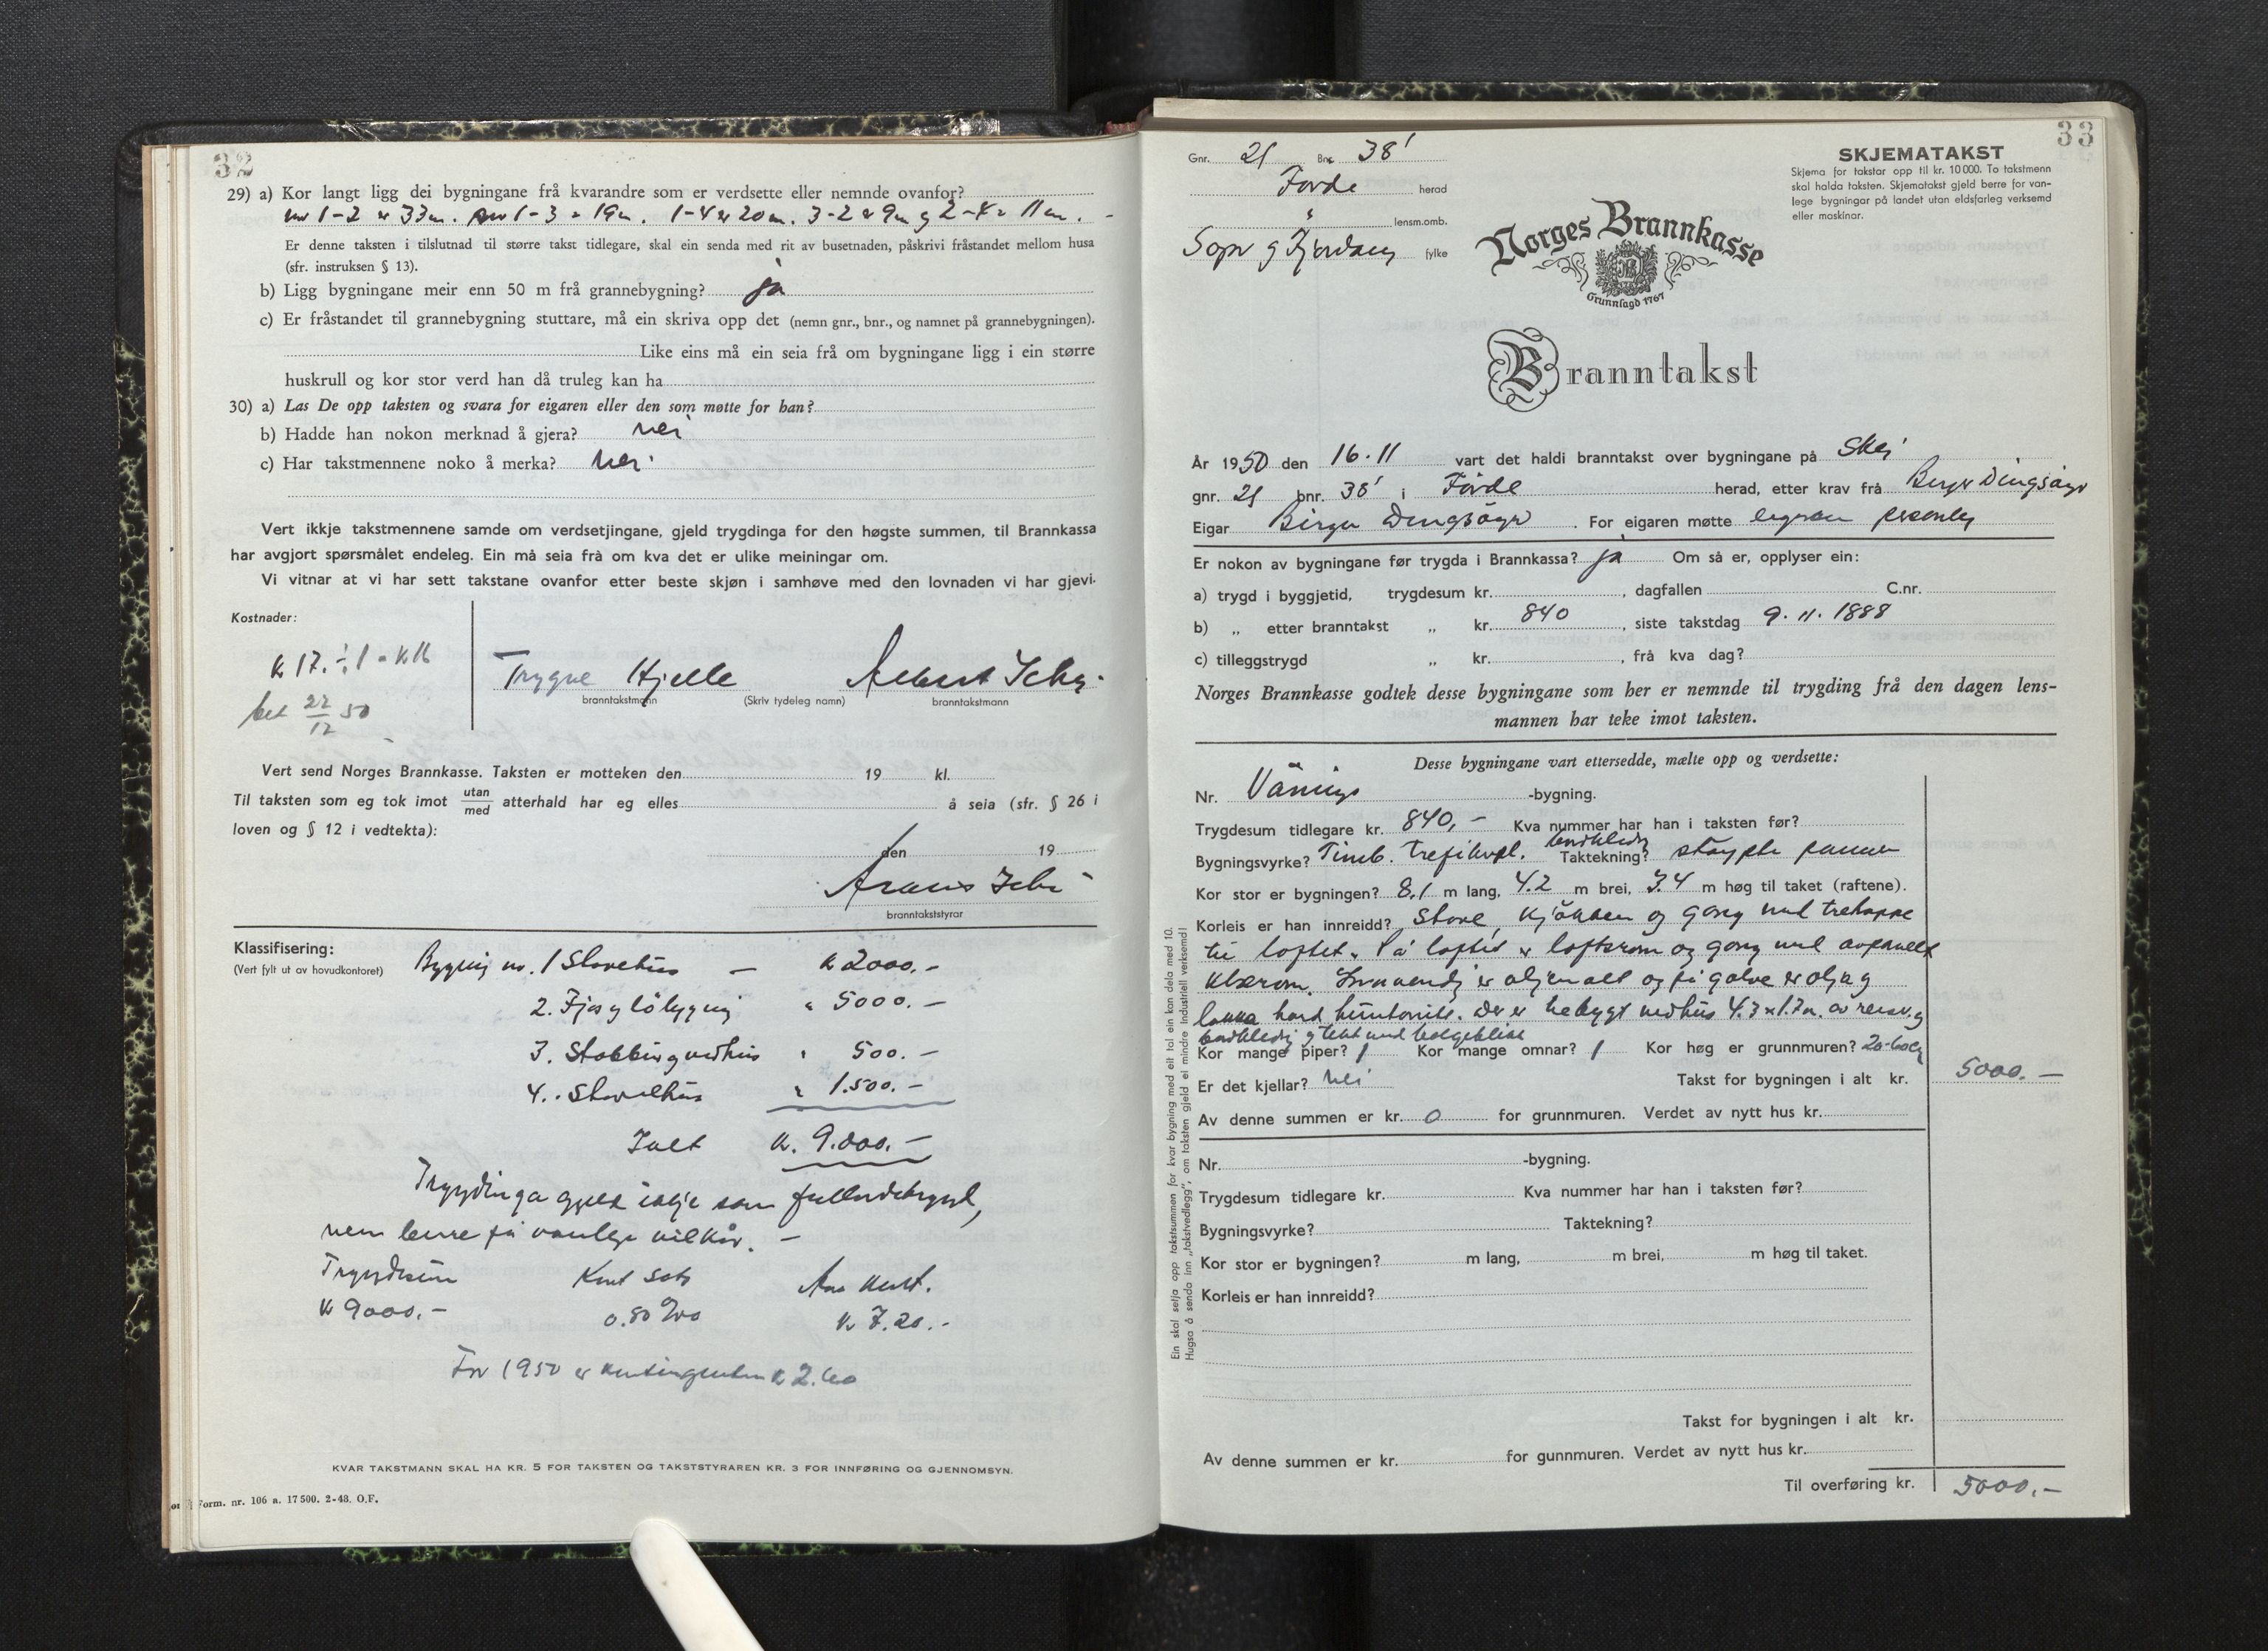 32
29) a) Kor langt ligg dei bygningane frå kvarandre som er verdsette eller nemnde ovanfor?
nr 1-2 er 33m. nr 1-3 = 19m. 1-4 er 20m. 3-2 er 9m og 2-4 = 11m.
Er denne taksten i tilslutnad til større takst tidlegare, skal ein senda med rit av busetnaden, påskrivi fråstandet mellom husa
(sfr. instruksen § 13).
b) Ligg bygningane meir enn 50 m frå grannebygning? ja
c) Er fråstandet til grannebygning stuttare, må ein skriva opp det (nemn gnr., bnr., og namnet på grannebygningen).
Like eins må ein seia frå om bygningane ligg i ein større
huskrull og kor stor verd han då truleg kan ha
30) a) Las De opp taksten og svara for eigaren eller den som møtte for han?
b) Hadde han nokon merknad å gjera? nei
c) Har takstmennene noko å merka? nei
Vert ikkje takstmennene samde om verdsetjingane, gjeld trygdinga for den høgste summen, til Brannkassa
har avgjort spørsmålet endeleg. Ein må seia frå om kva det er ulike meiningar om.
Vi vitnar at vi har sett takstane ovanfor etter beste skjøn i samhøve med den lovnaden vi har gjevi.
Kostnader:
k 17. ÷ 1 = k 16
bet 22/12 50
Trygve Hjelle
branntakstmann
(Skriv tydeleg namn)
branntakstmann
Vert send Norges Brannkasse. Taksten er motteken den 19 kl.
Til taksten som eg tok imot utan/med atterhald har eg elles å seia (sfr. § 26 i
loven og § 12 i vedtekta):
den 19
branntakststyrar
Klassifisering:
(Vert fylt ut av hovudkontoret)
Bygning nr. 1 Stovehus — k 2000.-
2. Fjos og löbygning " 5000.-
3. Stabbur og vedhus " 500.-
4. Stovehus " 1.500.-
Ialt k. 9.000.-
Trygdinga gjeld ikkje som fullverdetrygd,
men berre på vanlege vilkår. -
Trygdesum Kont sats Aars kont.
k 9000.- 0.80 ‰ k 7.20.-
For 1950 er kontingenten k 2.60
KVAR TAKSTMANN SKAL HA KR. 5 FOR TAKSTEN OG TAKSTSTYRAREN KR. 3 FOR INNFØRING OG GJENNOMSYN.
Form. nr. 106 a. 17 500. 2-48. O.F.
33
Gnr. 21 Bnr. 38'
Förde herad
" lensm.omb.
Sogn og Fjordane fylke
SKJEMATAKST
Skjema for takstar opp til kr. 10 000. To takstmenn
skal halda taksten. Skjematakst gjeld berre for van-
lege bygningar på landet utan eldsfarleg verksemd
eller maskinar.
Norges Brannkasse
Grunnlagd 1767
Branntakst
År 1950 den 16.11 vart det haldi branntakst over bygningane på Skei
gnr. 21 bnr. 38' i Förde herad, etter krav frå Birger Dingsöyr
Eigar Birger Dingsöyr. For eigaren møtte eigaren personleg
Er nokon av bygningane før trygda i Brannkassa? ja Om så er, opplyser ein:
a) trygd i byggjetid, trygdesum kr. , dagfallen C.nr.
b) „ etter branntakst „ kr. 840 , siste takstdag 9.11.1888
c) tilleggstrygd „ kr. , frå kva dag?
Norges Brannkasse godtek desse bygningane som her er nemnde til trygding frå den dagen lens-
mannen har teke imot taksten.
Desse bygningane vart ettersedde, mælte opp og verdsette:
Nr. Vånings -bygning.
Trygdesum tidlegare kr. 840,- Kva nummer har han i taksten før?
Bygningsvyrke? Timb. trefikupl. bordkledg Taktekning? støypte panner
Kor stor er bygningen? 8.1 m lang, 4.2 m brei, 3.4 m høg til taket (raftene).
Korleis er han innreidd? Stove, kjökken og gang med tretrappe
til loftet. På loftet er loftsrom og gang med avpanelt
klærom. Innvendig er oljemalt og på golve er olja og
lakka hard huntonitt. Der er tilbygt vedhus 4.3 x 1.7 m. av reisv. og
bordkledig og tekt med bølgeblikk
Kor mange piper? 1 Kor mange omnar? 1 Kor høg er grunnmuren? 20-60 cm
Er det kjellar? nei Takst for bygningen i alt kr. 5000.—
Av denne summen er kr. 0 for grunnmuren. Verdet av nytt hus kr.
Nr. -bygning.
Trygdesum tidlegare kr. Kva nummer har han i taksten før?
Bygningsvyrke? Taktekning?
Kor stor er bygningen? m lang, m brei, m høg til taket.
Korleis er han innreidd?
Takst for bygningen i alt kr.
Av denne summen er kr. for gunnmuren. Verdet av nytt hus kr.
Til overføring kr. 5000.—
Ein skal setja opp takstsummen for kvar bygning med eit tal ein kan dela med 10.
Hugsa å senda inn „takstvedlegg", om taksten gjeld ei mindre industriell verksemd!